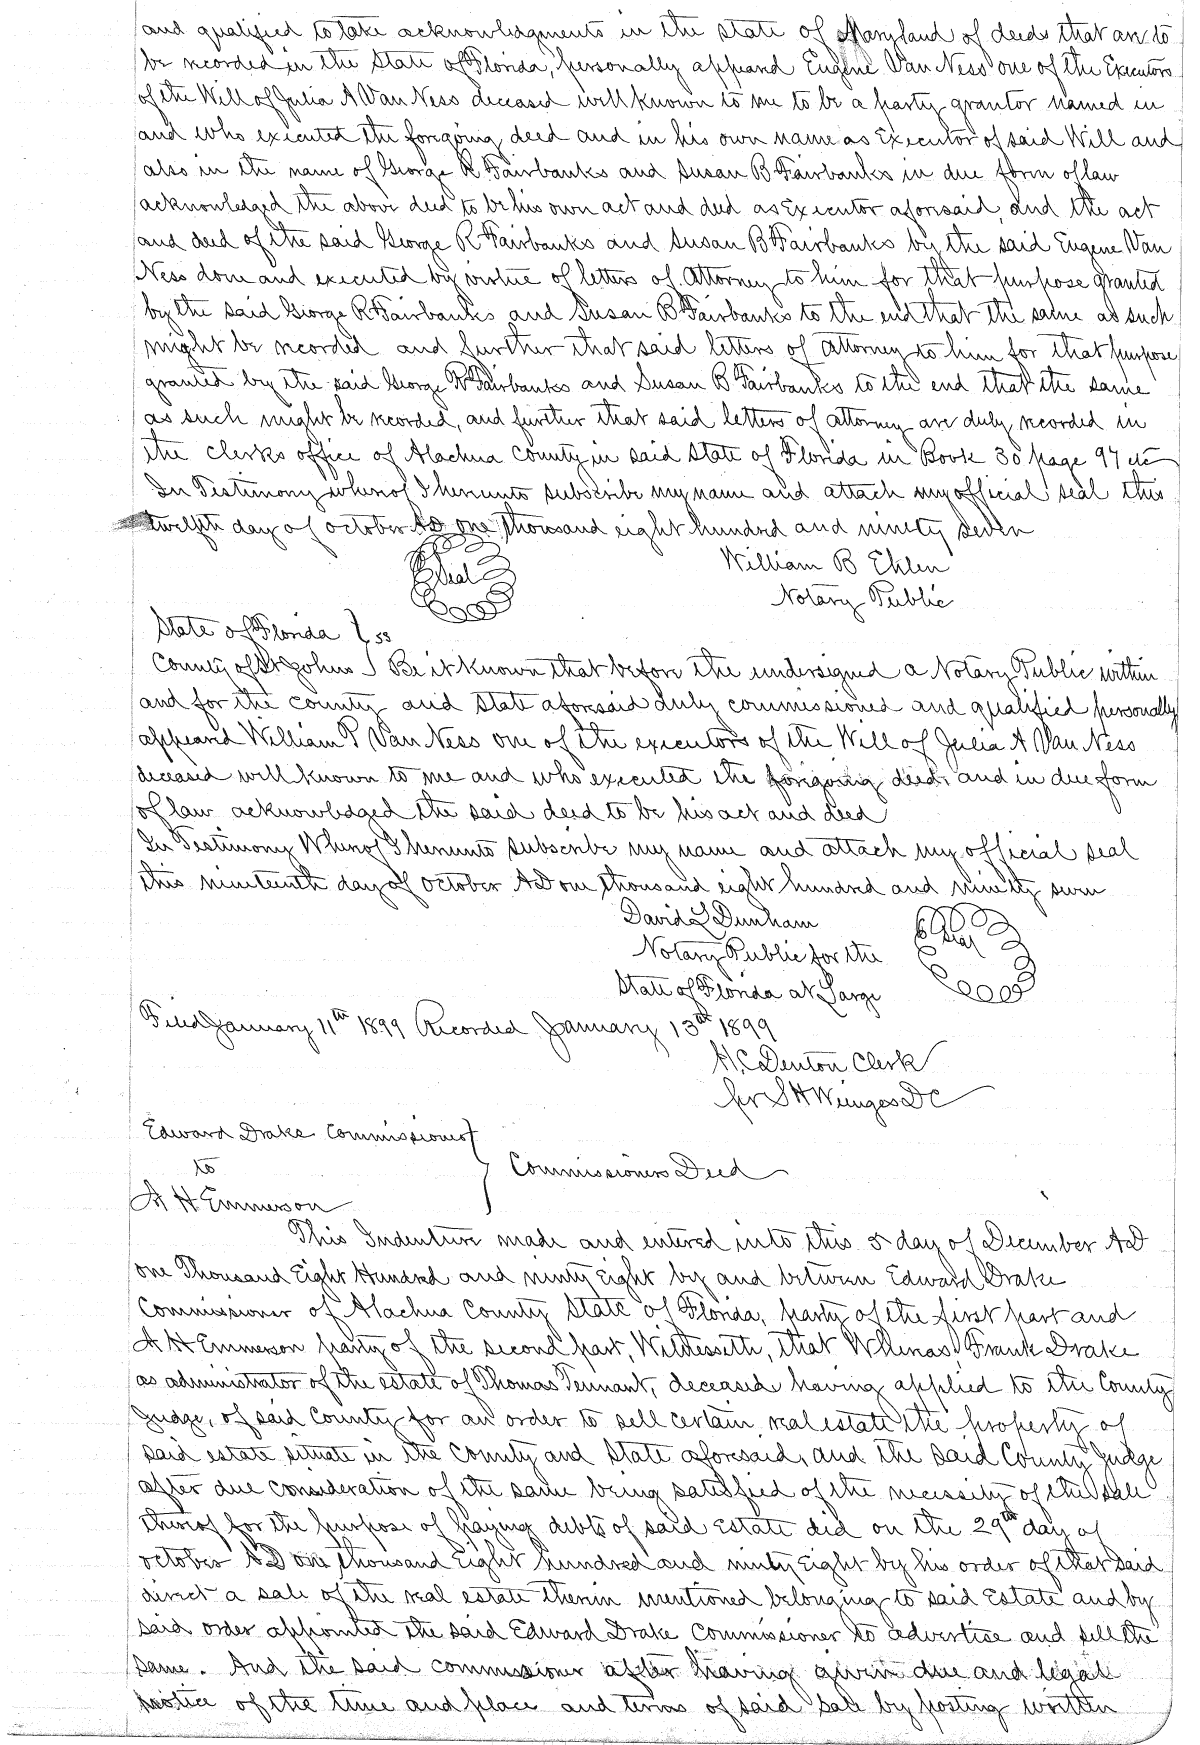 and qualified to take acknowledgments in the state of Maryland of deeds that are to
be recorded in the State of Florida, personally appeared Eugene Van Ness one of the Executors
of the Will of Julia A Van Ness deceased well known to me to be a party grantor named in
and who executed the foregoing deed and in his own name as Executor of said Will and
also in the name of George R Fairbanks and Susan B Fairbanks in due form of law
acknowledged the above deed to be his own act and deed as Executor aforesaid, and the act
and deed of the said George R Fairbanks and Susan B Fairbanks by the said Eugene Van
Ness done and executed by virtue of letters of Attorney to him for that purpose granted
by the said George R Fairbanks and Susan B Fairbanks to the end that the same as such
might be recorded and further that said letters of attorney to him for that purpose
granted by the said George R Fairbanks and Susan B Fairbanks to the end that the same
as such might be recorded, and further that said letters of attorney are duly recorded in
the Clerks office of Alachua County in said State of Florida in Book 30 page 97 etc
In Testimony whereof I hereunto subscribe my name and attach my official seal this
twelfth day of October AD one thousand eight hundred and ninety seven
Seal
William B Ehlen
Notary Public
State of Florida } ss
County of St Johns } Be it known that before the undersigned a Notary Public within
and for the county and State aforesaid duly commissioned and qualified personally
appeared William P Van Ness one of the executors of the Will of Julia A Van Ness
deceased well known to me and who executed the foregoing deed, and in due form
of law acknowledged the said deed to be his act and deed
In Testimony Whereof I hereunto subscribe my name and attach my official seal
this nineteenth day of October AD one thousand eight hundred and ninety seven
David L Dunham
Seal
Notary Public for the
State of Florida at Large
Filed January 11th 1899 Recorded January 13th 1899
H.C. Denton Clerk
per S H Wienges DC
Edward Drake Commissioner
to } Commissioners Deed
A H Emmerson
This Indenture made and entered into this 5 day of December AD
one Thousand Eight Hundred and ninty Eight by and between Edward Drake
Commissioner of Alachua County State of Florida, party of the first part and
A H Emmerson party of the second part, Witnesseth, that Whereas, Frank Drake
as administrator of the estate of Thomas Tennant, deceased having applied to the County
Judge, of said County for an order to sell certain real estate the property of
said estate situate in the County and State aforesaid, and the said County Judge
after due consideration of the same being satisfied of the necessity of the sale
thereof for the purpose of paying debts of said Estate did on the 29th day of
october AD one thousand Eight hundred and ninty Eight by his order of that said
direct a sale of the real estate therein mentioned belonging to said Estate and by
said order appointed the said Edward Drake Commissioner to advertise and sell the
same. And the said commissioner after having given due and legal
notice of the time and place and terms of said sale by posting written